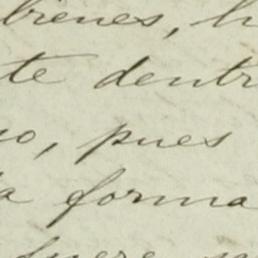 bienes, h
te dentr
o, pues
a forma
fuere